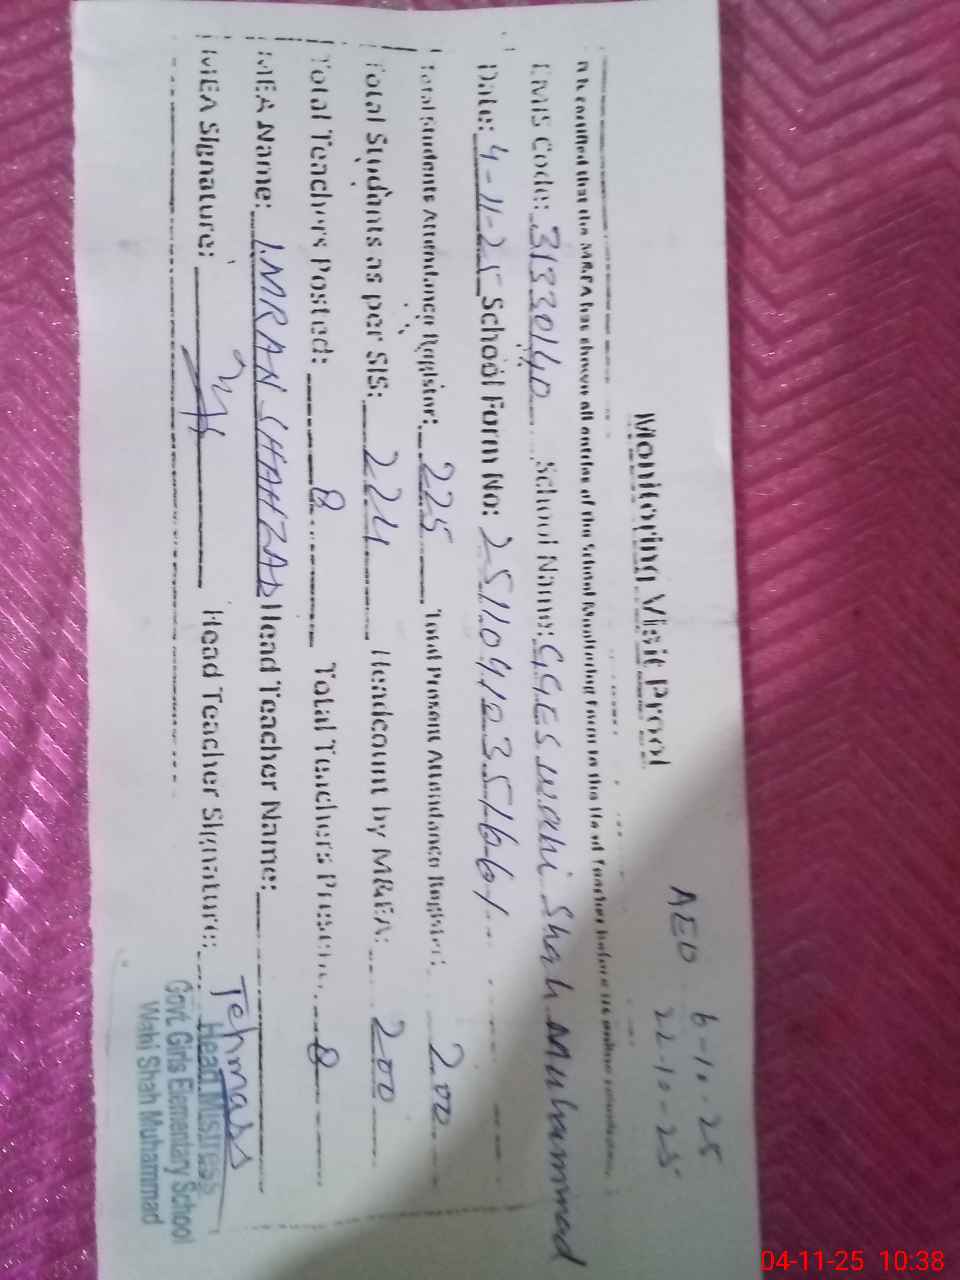 AED 6-10-25
22-10-25
Monitoring Visit Proof
It is certified that the M&EA has shown all entries of the School Monitoring Form to the Head Teacher before its online
EMIS Code: 31330140 School Name: GGES Wahi Shah Muhammad
Date: 4-11-25 School Form No:
Total Students Attendance Register: 225 Total Present Attendance Register: 200
Total Students as per SIS: 224 Headcount by M&EA: 200
Total Teachers Posted: 8 Total Teachers Present: 8
MEA Name: IMRAN SHAHZAD Head Teacher Name:
MEA Signature: Head Teacher Signature:
Head Mistress
Govt. Girls Elementary School
Wahi Shah Muhammad
04-11-25 10:38